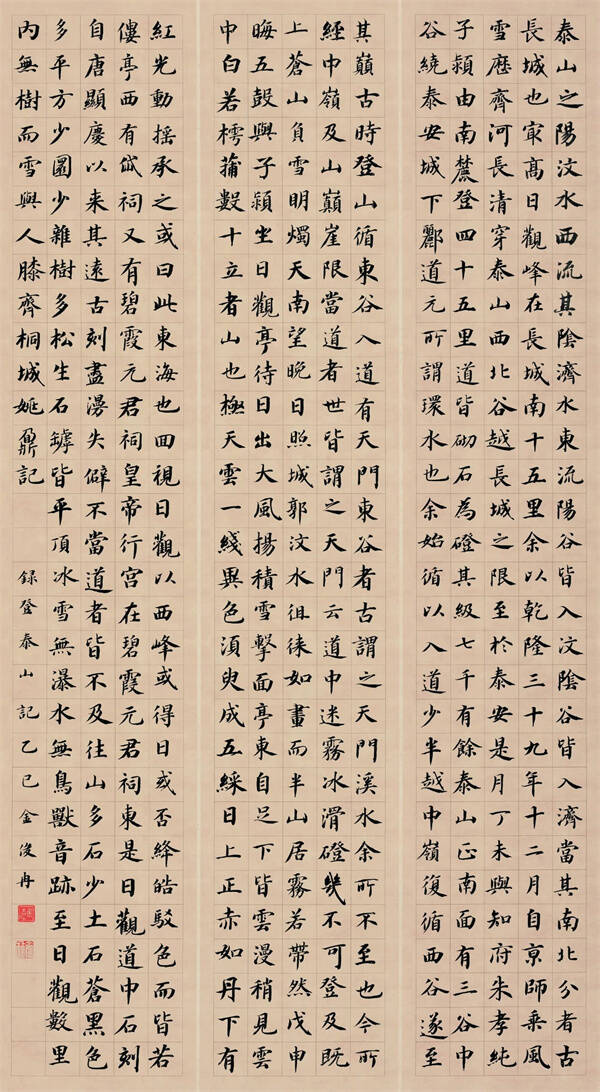 泰山之陽汶水西流其陰濟水東流陽谷皆入汶陰谷皆入濟當其南北分者古
長城也冣高日觀峰在長城南十五里余以乾隆三十九年十二月自京師乗風
雪歷齊河長清穿泰山西北谷越長城之限至於泰安是月丁未與知府朱孝純
子潁由南麓登四十五里道皆砌石為磴其級七千有餘泰山正南面有三谷中
谷繞泰安城下酈道元所謂環水也余始循以入道少半越中嶺復循西谷遂至
其巔古時登山循東谷入道有天門東谷者古謂之天門溪水余所不至也今所
經中嶺及山巔崖限當道者世皆謂之天門云道中迷霧冰滑磴幾不可登及既
上蒼山負雪明燭天南望晚日照城郭汶水徂徠如畫而半山居霧若帶然戊申
晦五鼓與子潁坐日觀亭待日出大風揚積雪擊面亭東自足下皆雲漫稍見雲
中白若樗蒱數十立者山也極天雲一綫異色須臾成五綵日上正赤如丹下有
紅光動搖承之或曰此東海也回視日觀以西峰或得日或否絳皓駁色而皆若
僂亭西有岱祠又有碧霞元君祠皇帝行宮在碧霞元君祠東是日觀道中石刻
自唐顯慶以来其遠古刻盡漫失僻不當道者皆不及往山多石少土石蒼黑色
多平方少圜少雜樹多松生石罅皆平頂冰雪無瀑水無鳥獸音跡至日觀數里
內無樹而雪與人膝齊桐城姚鼐記
録登泰山記乙巳金俊冉